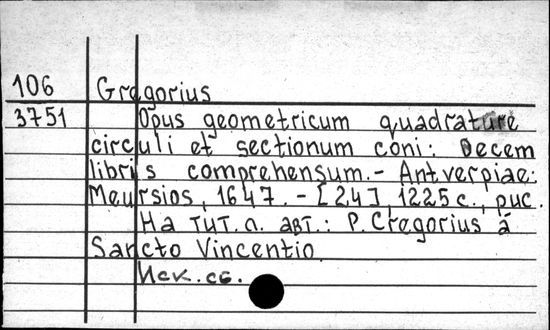 106 Gregorius
3751 Opus geometricum quadrature
circuli et sectionum coni: Decem
libris comprehensum.- Antverpiae:
Meursios, 1647. - [24], 1225 с., рис.
На тит. л. авт.: P. Cregorius á
Sancto Vincentio
Иск. сб.